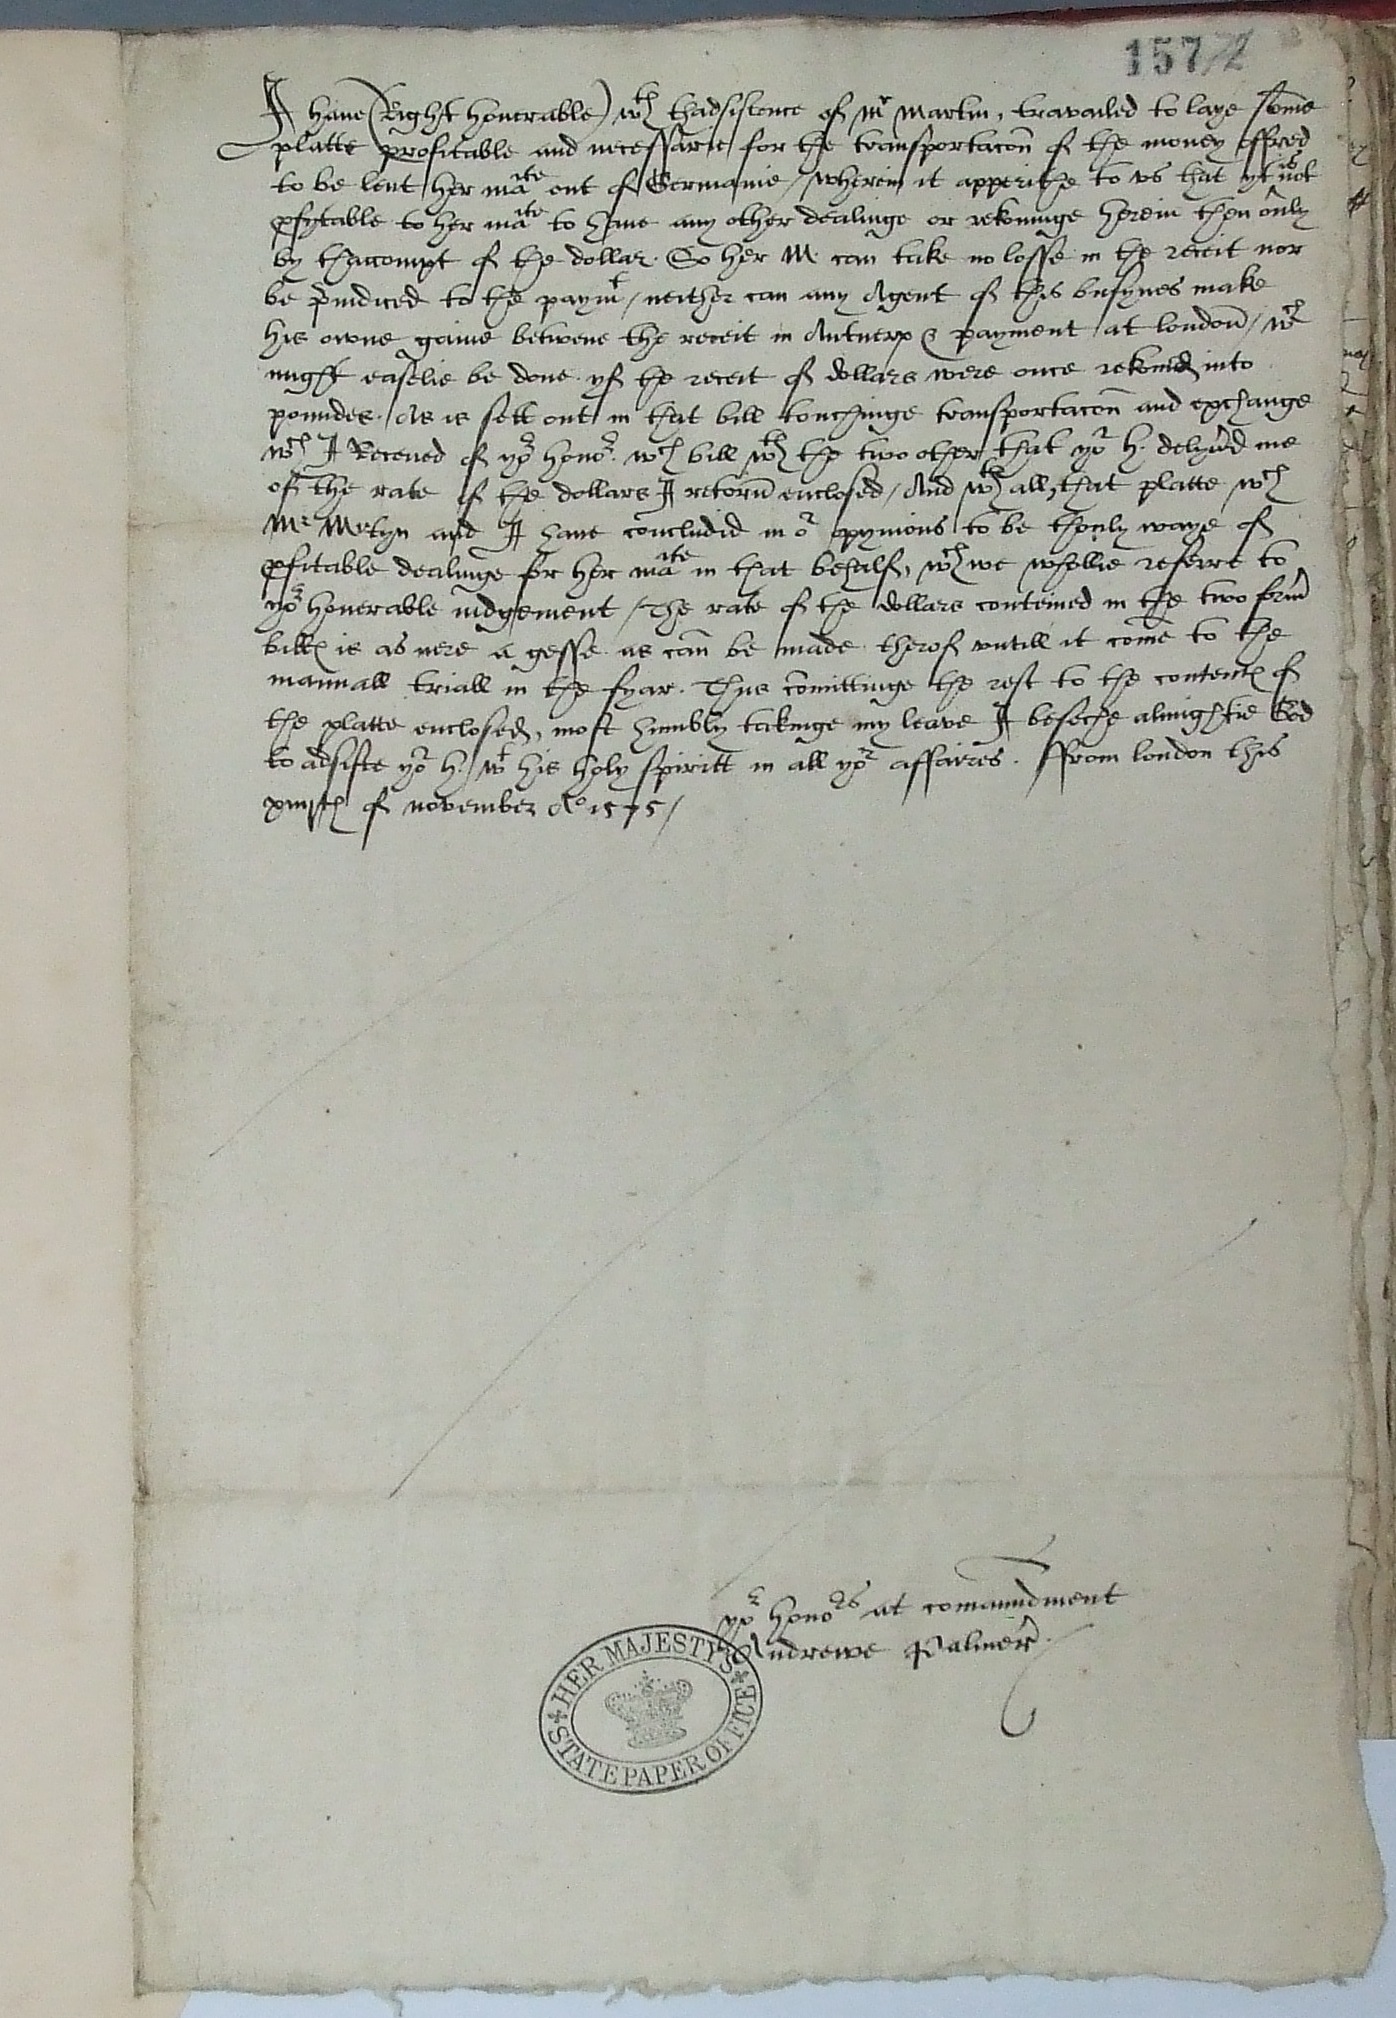 157/2
I haue (Right honerable) wth thadsistence of Mr Martin, travailed to laye some
platte profitable and necessarie for the transportacon of the money offred
to be lent her Matie out of Germanie / wherein it apperithe to vs that yt is not
pfytable to her matie to haue any other dealinge or rekninge herein then only
by thaccompt of the dollar. So her M. can take no losse in the receit nor
be preiudiced to the paymt / neither can any Agent of this busynes make
his owne gaine betwene the receit in Antwerp & payment at london / wch
might easelie be done yf the receit of dollars were once rekned into
poundes. As is sett out in that bill touchinge transportacon and exchange
wch I Receued of yor honor. wch bill wth the two other that yor h. delyuerd me
of the rate of the dollars I retorn enclosed / And wth all, that platte wch
Mr Martyn and I haue concludid in or opynions to be thonly waye of
pfitable dealinge for her matie in that behalf, wch we whollie referre to
yor honerable iudgement / The rate of the dollars conteined in the two form
billes is as nere a gesse as can be made therof vntill it come to the
manuall triall in the fyar. Thus comittinge the rest to the contentes of
the platte enclosed, most humbly takinge my leave I beseche almightie God
to adsiste yor h. wt his holy spiritt in all yor affaires. ffrom london this
xiiijth of november Ao 1575 /
yor honors at comaundment
Andrewe Palmer
HER MAJESTY'S
STATE PAPER OFFICE